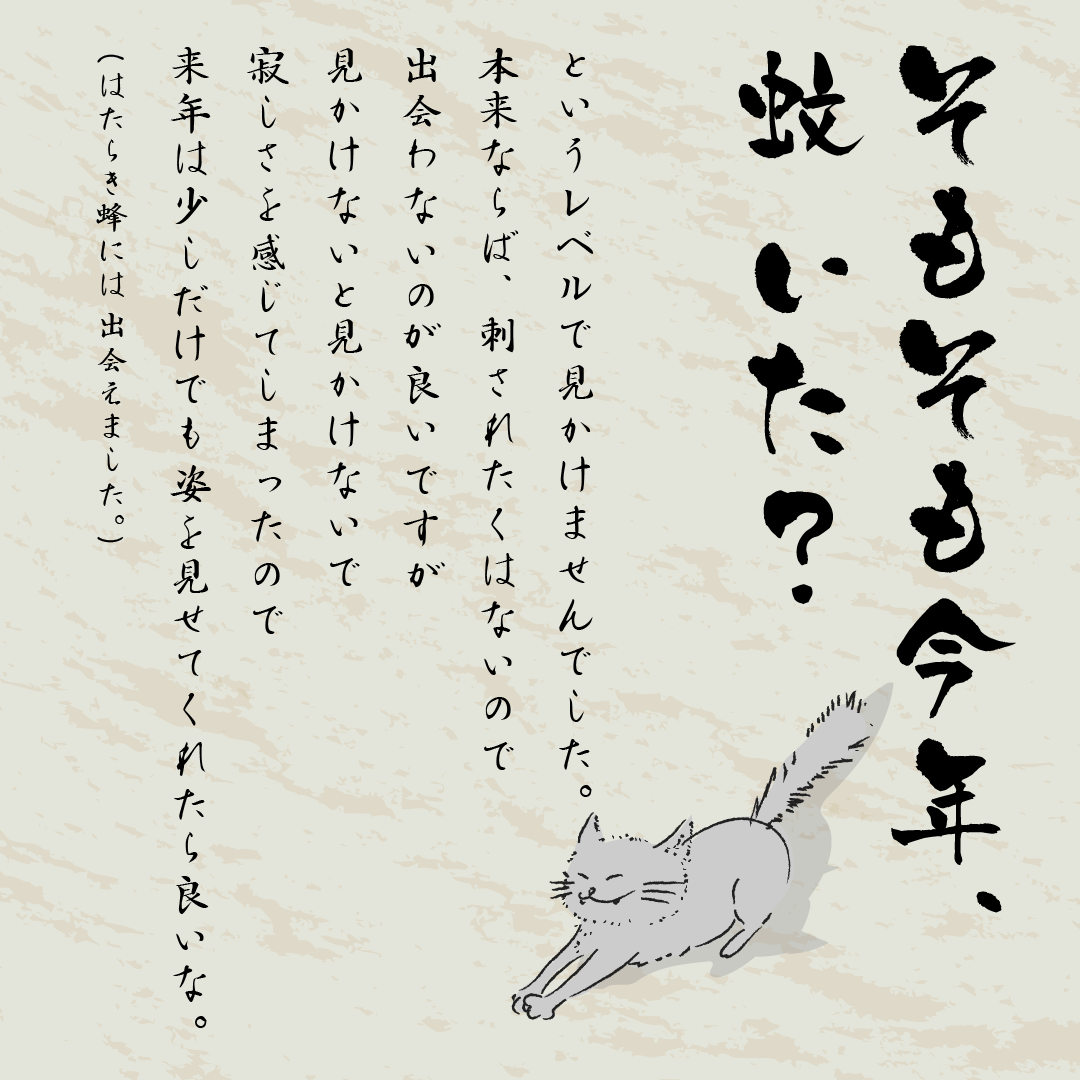 そもそも今年、
蚊いた？
というレベルで見かけませんでした。
本来ならば、刺されたくはないので
出会わないのが良いですが
見かけないと見かけないで
寂しさを感じてしまったので
来年は少しだけでも姿を見せてくれたら良いな。
（はたらき蜂には出会えました。）